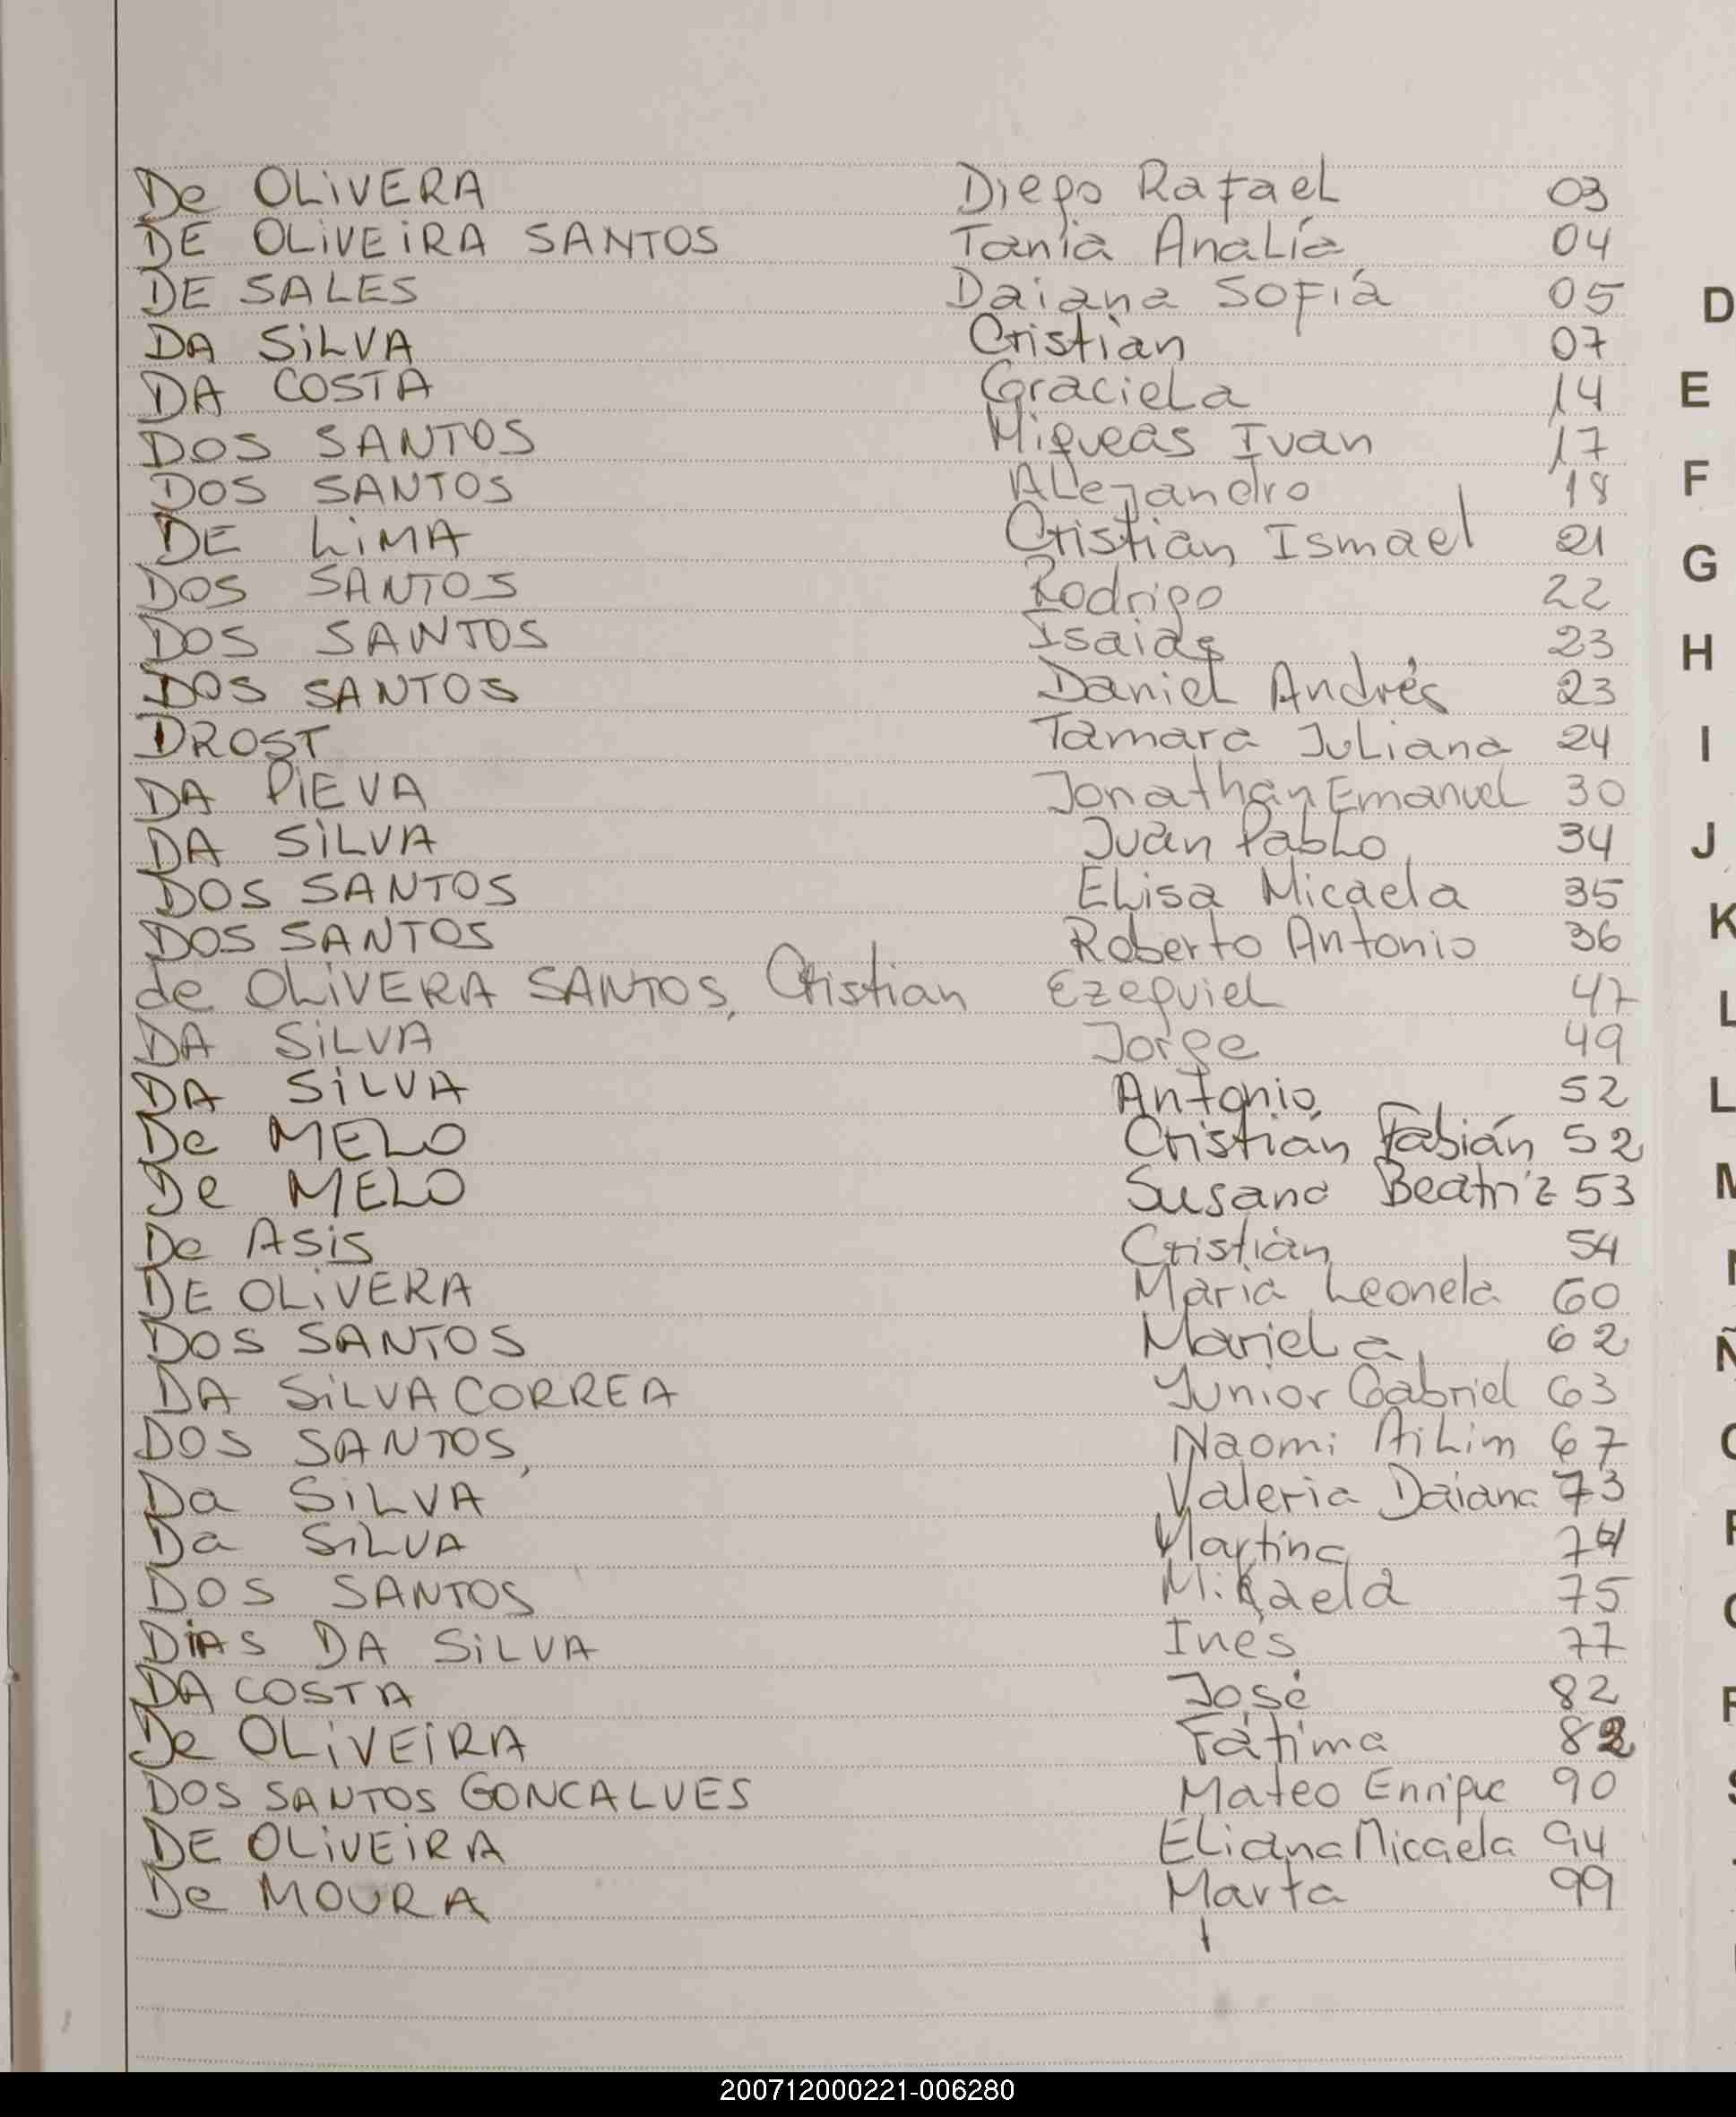 De OLIVERA Diego Rafael 03
DE OLIVEIRA SANTOS Tania Analía 04
DE SALES Daiana Sofía 05
DA SILVA Cristian 07
DA COSTA Graciela 14
DOS SANTOS Miqueas Ivan 17
DOS SANTOS Alejandro 18
DE LIMA Cristian Ismael 21
DOS SANTOS Rodrigo 22
DOS SANTOS Isaias 23
DOS SANTOS Daniel Andrés 23
DROST Tamara Juliana 24
DA PIEVA Jonathan Emanuel 30
DA SILVA Juan Pablo 34
DOS SANTOS Elisa Micaela 35
DOS SANTOS Roberto Antonio 36
de OLIVERA SANTOS, Cristian Ezequiel 47
DA SILVA Jorge 49
DA SILVA Antonio 52
De MELO Cristian Fabián 52
De MELO Susana Beatriz 53
De Asis Cristian 54
DE OLIVERA Maria Leonela 60
DOS SANTOS Mariela 62
DA SILVA CORREA Junior Gabriel 63
DOS SANTOS, Naomi Ailim 67
Da SILVA Valeria Daiana 73
Da SILVA Martina 74
DOS SANTOS Mikaela 75
DIAS DA SILVA Inés 77
DA COSTA José 82
De OLIVEIRA Fátima 82
DOS SANTOS GONCALVES Mateo Enrique 90
DE OLIVEIRA Eliana Micaela 94
De MOURA Marta 99
D
E
F
G
H
I
J
K
L
L
M
N
Ñ
200712000221-006280